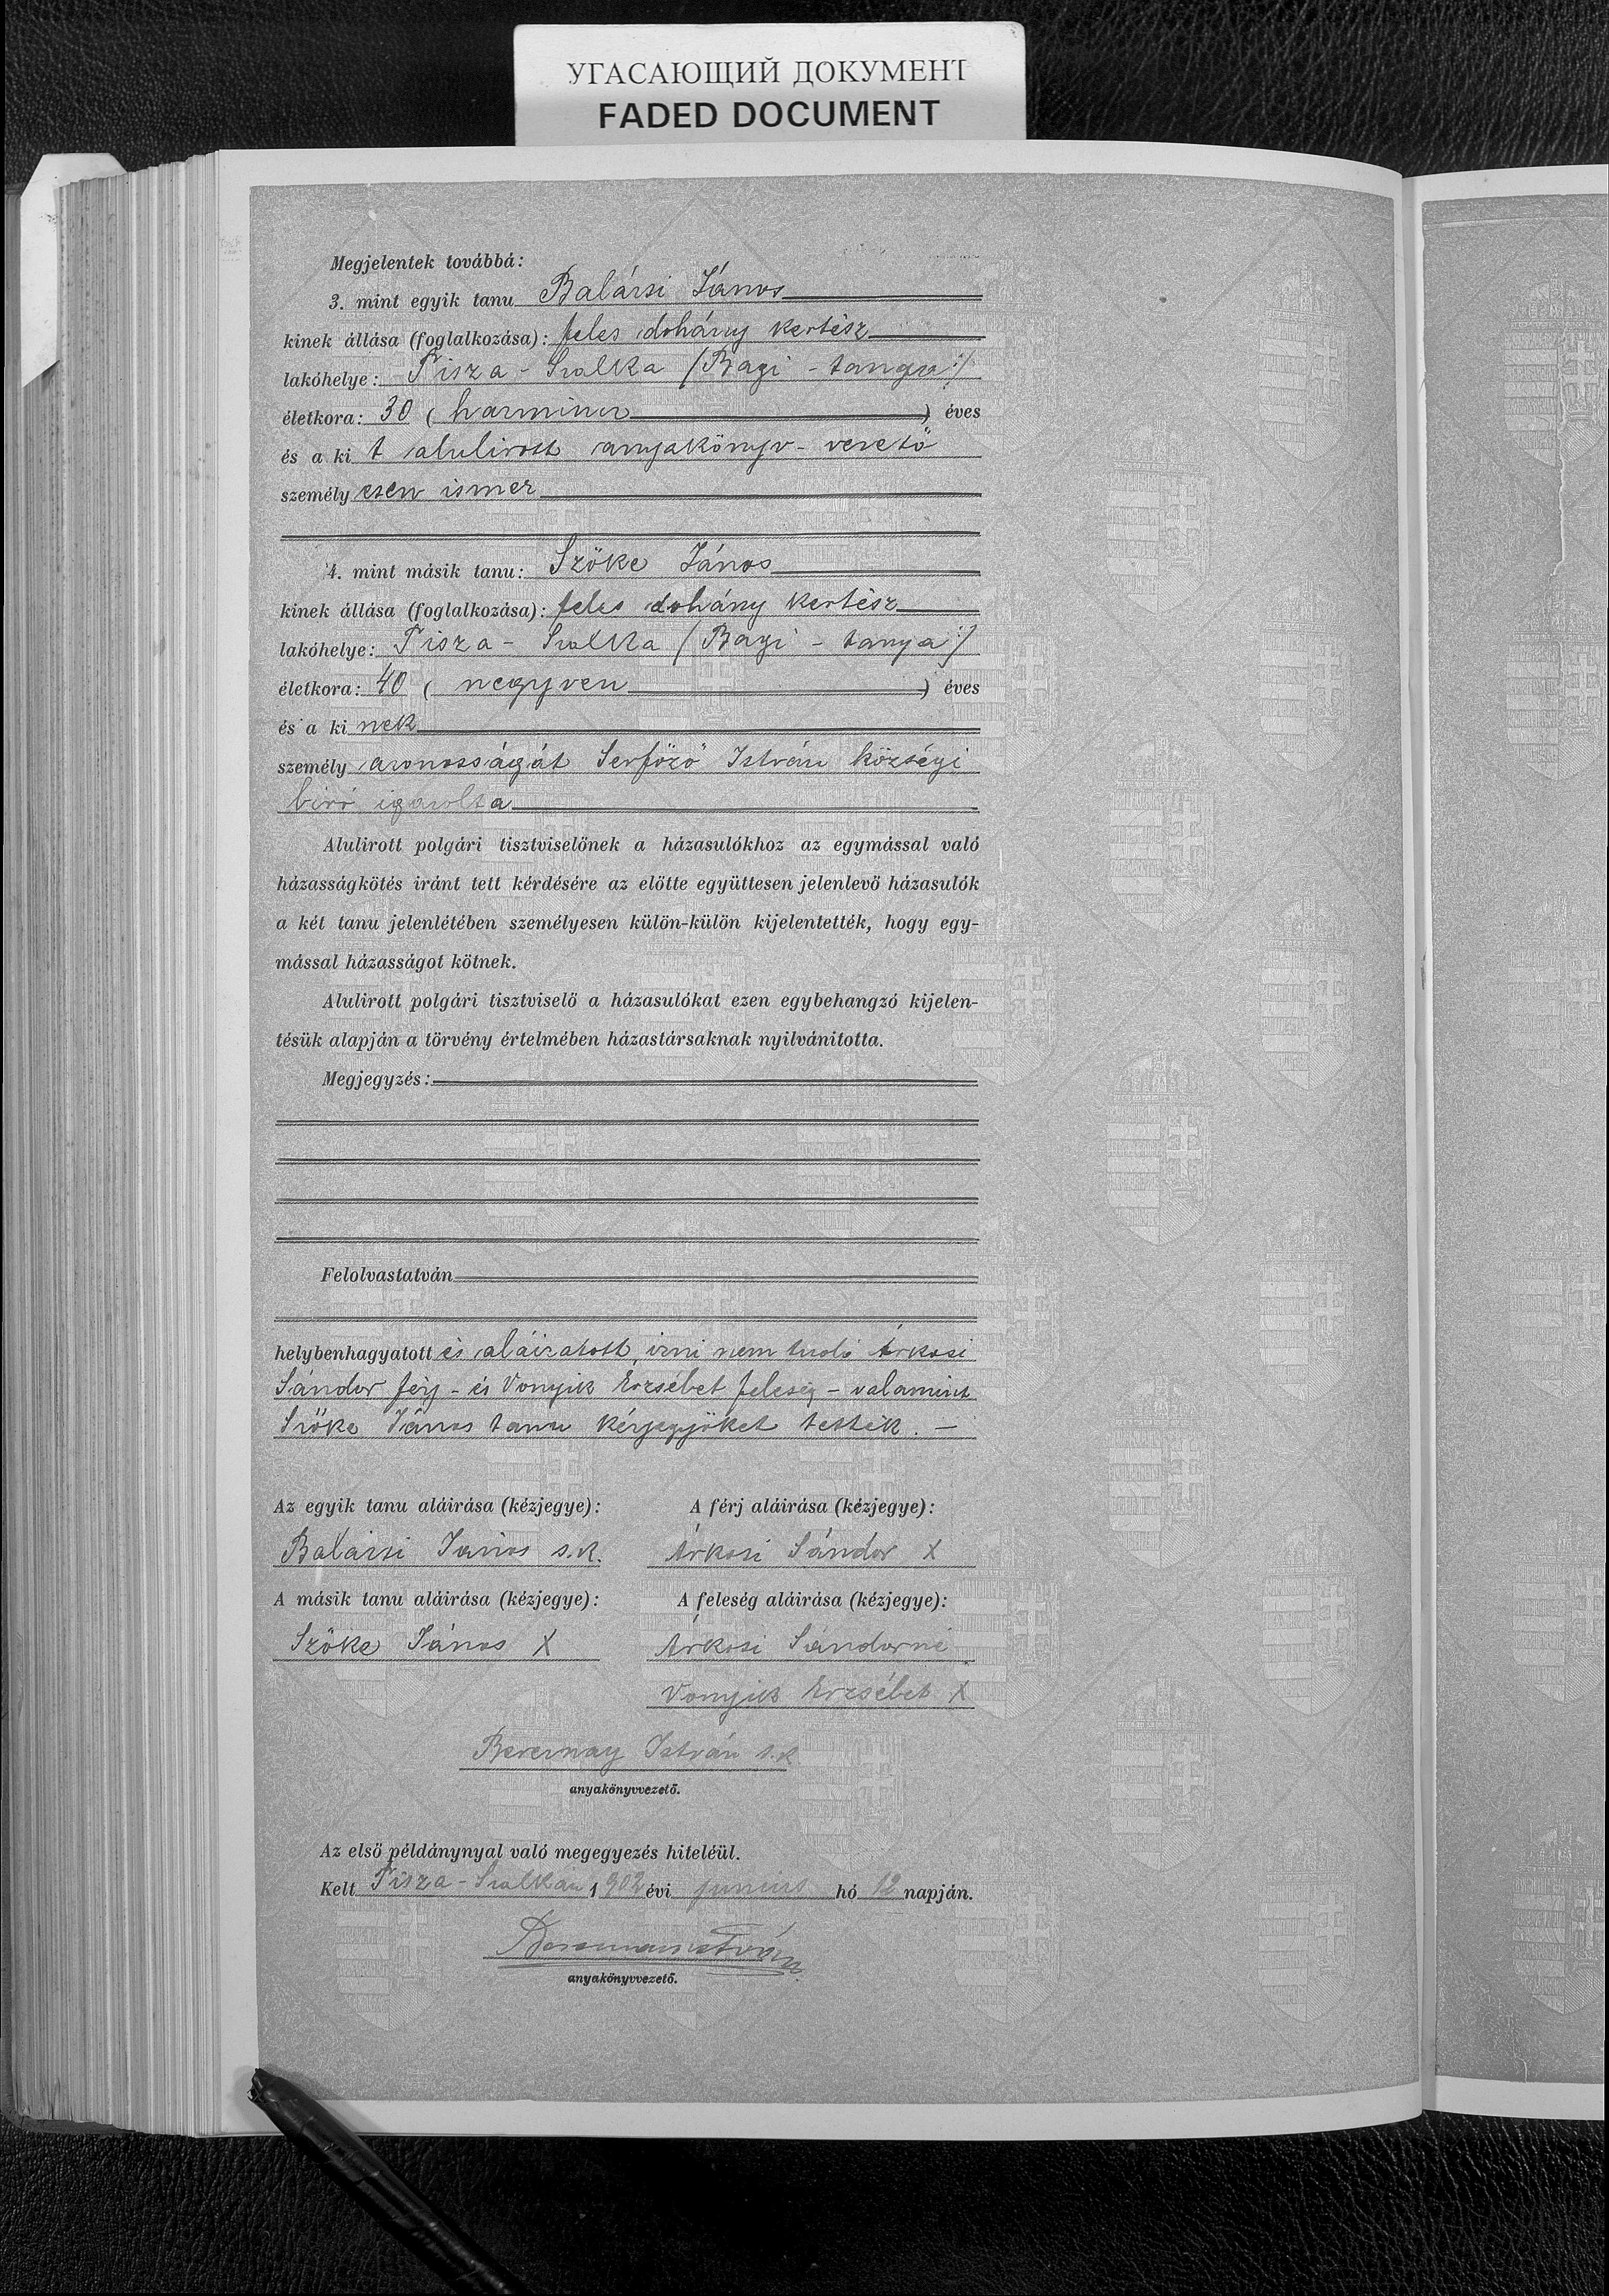 УГАСАЮЩИЙ ДОКУМЕНТ
FADED DOCUMENT
Megjelentek továbbá:
3. mint egyik tanu Balázsi János
kinek állása (foglalkozása): feles dohány kertész
lakóhelye: Tisza-Szalka (Bagi-tanya)
életkora: 30 (harmincz) éves
és a ki t alulirott anyakönyv-vezető
személy esen ismer
4. mint másik tanu: Szőke János
kinek állása (foglalkozása): feles dohány kertész
lakóhelye: Tisza-Szalka (Bagi-tanya)
életkora: 40 (negyven) éves
és a ki nek
személy azonosságát Serfőző István községi
biró igazolta
Alulirott polgári tisztviselőnek a házasulókhoz az egymással való
házasságkötés iránt tett kérdésére az előtte együttesen jelenlevő házasulók
a két tanu jelenlétében személyesen külön-külön kijelentették, hogy egy-
mással házasságot kötnek.
Alulirott polgári tisztviselő a házasulókat ezen egybehangzó kijelen-
tésük alapján a törvény értelmében házastársaknak nyilvánitotta.
Megjegyzés:
Felolvastatván
helybenhagyatott és aláiratott, irni nem tudó Árkosi
Sándor férj - és Vonyik Erzsébet feleség - valamint
Szőke János tanu kézjegyöket tették. —
Az egyik tanu aláirása (kézjegye): A férj aláirása (kézjegye):
Balázsi János s.k. Árkosi Sándor X
A másik tanu aláirása (kézjegye): A feleség aláirása (kézjegye):
Szőke János X Árkosi Sándorné
Vonyik Erzsébet X
István s.k.
anyakönyvvezető.
Az első példánynyal való megegyezés hiteléül.
Kelt Tisza-Szalkán 1902 évi junius hó 12 napján.
István
anyakönyvvezető.